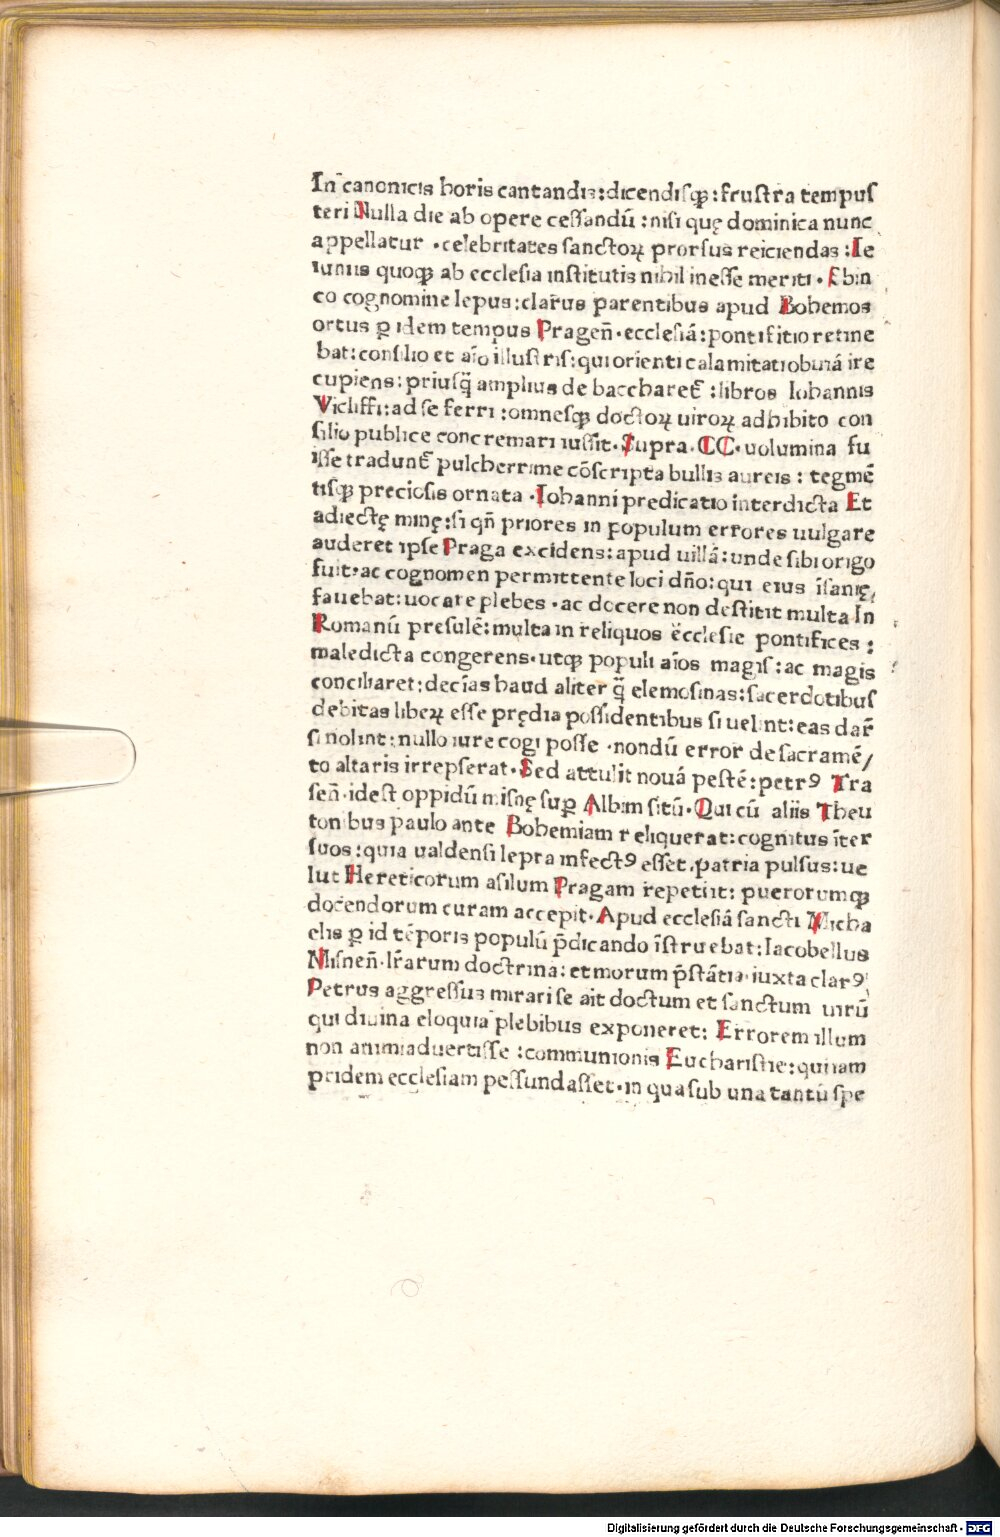 In canonicis horis cantandis:dicendisqꝫ:frustra tempus
teri Nulla die ab opere cessandū:nisi quę dominica nunc
appellatur ·celebritates sanctoꝝ prorsus reiciendas:Ie
iuniis quoqꝫ ab ecclesia institutis nihil inesse meriti· Sbin
co cognomine lepus:clarus parentibus apud Bohemos
ortus ꝑ idem tempus Pragen̄·ecclesiā:pontifitio retine
bat:consilio et aīo illustris:qui orienti calamitati obuiā ire
cupiens:priusq̄ amplius de baccharet᷑:libros Iohannis
Vicliffi:ad se ferri:omnesqꝫ doctoꝝ uiroꝝ adhibito con
silio publice concremari iussit·Supra·CC·uolumina fu
isse tradunt᷑ pulcherrime cōscripta bullis aureis:tegmē
tisqꝫ preciosis ornata ·Iohanni predicatio interdicta Et
adiectę minę:si qn̄ priores in populum errores uulgare
auderet ipse Praga excidens:apud uillā:unde sibi origo
fuit·ac cognomen permittente loci dn̄o:qui eius īsanię
fauebat:uocare plebes·ac docere non destitit multa In
Romanū presulē:multa in reliquos ecclesie pontifices:
maledicta congerens·utqꝫ populi aīos magis:ac magis
conciliaret:decīas haud aliter q̄ elemosinas:sacerdotibus
debitas libeꝝ esse prędia possidentibus si uelint:eas dar̄
si nolint:nullo iure cogi posse ·nondū error de sacramē/
to altaris irrepserat·Sed attulit nouā pestē:petrꝰ Tra
sen̄·idest oppidū misnę suꝑ Albim sitū·Qui cū aliis Theu
tonibus paulo ante Bohemiam reliquerat:cognitus īter
suos:quia ualdensi lepra infectꝰ esset·patria pulsus:ue
lut Hereticorum asilum Pragam repetiit:puerorumqꝫ
docendorum curam accepit·Apud ecclesiā sancti Micha
elis ꝑ id tēporis populū p̄dicando īstruebat:Iacobellus
Misnen̄·lr̄arum doctrina:et morum p̄stātia·iuxta clarꝰ
Petrus aggressus mirari se ait doctum et sanctum uirū
qui diuina eloquia plebibus exponeret:Errorem illum
non animaduertisse:communionis Eucharistie:qui iam
pridem ecclesiam pessundasset·in qua sub una tantū spe
Digitalisierung gefördert durch die Deutsche Forschungsgemeinschaft - DFG